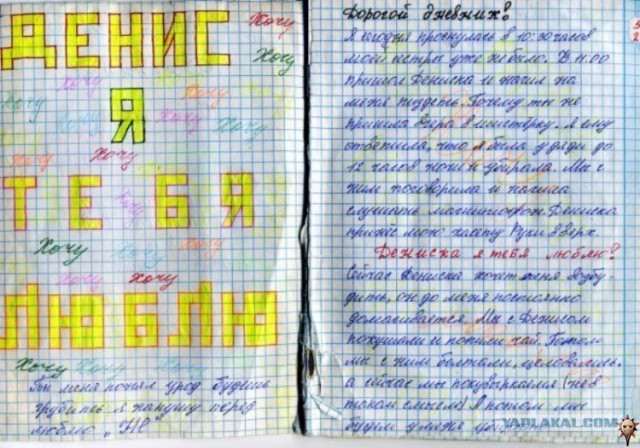 ДЕНИС
Я
ТЕБЯ
ЛЮБЛЮ
Хочу
Хочу
Хочу
Хочу
Хочу
Хочу
Хочу
Хочу
Хочу
Хочу
Ты меня понял урод будешь
грубить я накажу
люблю
Дорогой дневник!
Я сегодня проснулась в 10:30 часов
моей сестры уже не было. В 11.00
пришёл Дениска и начал на
меня пиздеть. Почему ты не
пришла вчера в шестёрку. Я ему
ответила, что я была у дяди до
12 часов ночи и убирала. Мы с
ним поговорили и начала
слушать магнитофон. Дениска
принёс мою касету Руки Вверх.
Дениска я тебя люблю!
Сейчас Дениска хочет меня возбу-
дить, он до меня постоянно
домагивается. Мы с Денисом
покушали и попили чай. Потом
мы с ним болтали, целовались,
а сейчас мы покувыркался (не в
таком смысле) А потом мы
будим у меня
YAPLAKAL.COM